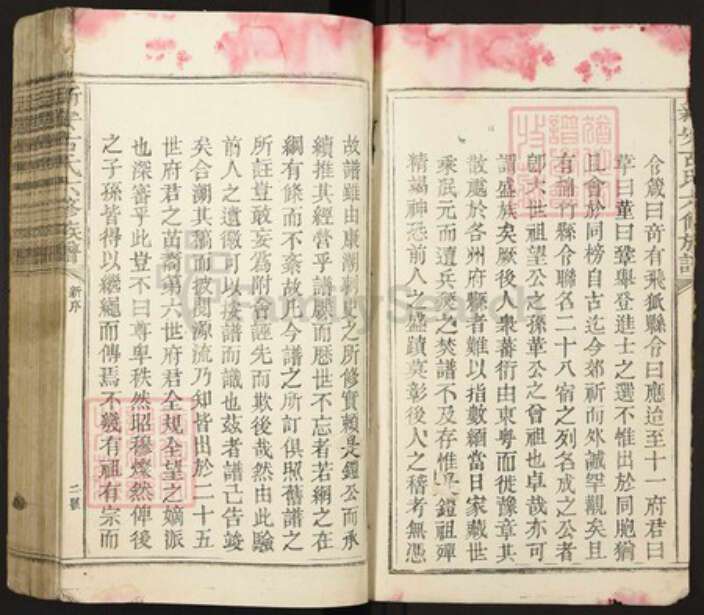 令歲曰奇有飛狐縣令曰應迨至十一府君曰
草曰董曰鞏舉登進士之選不惟出於同胞猶
且會於同榜自古迄今郊祈而外誠罕觀矣且
有綿竹縣令聯名二十八宿之列名成之公者
卽大世祖望公之孫革公之曾祖也卓哉亦可
謂盛族矣厥後人衆蕃衍由東粤而徙豫章其
散處於各州府縣者難以指數緬當日家藏世
乘底元而遭兵燹之焚譜不及存惟是鐙祖殫
精竭神恐前人之盛蹟莫彰後人之稽考無憑
故譜雖由康潮刺史之所修實賴是鐙公而承
續推其經營乎譜牒而歷世不忘者若網之在
綱有條而不紊故凡今譜之所訂俱照舊譜之
所註豈敢妄爲附會誣先而欺後哉然由此驗
前人之遺徽可以按譜而識也兹者譜已告竣
矣合潮其稿而披閱源流乃知皆出於二十五
世府君之苗裔第六世府君全規全望之嫡派
也深審乎此豈不曰尊卑秩然昭穆燦然俾後
之子孫皆得以繼繩而傳焉不幾有祖有宗而
新安古氏六修族譜
新序
二號
新安古氏六修族譜
FamilySearch